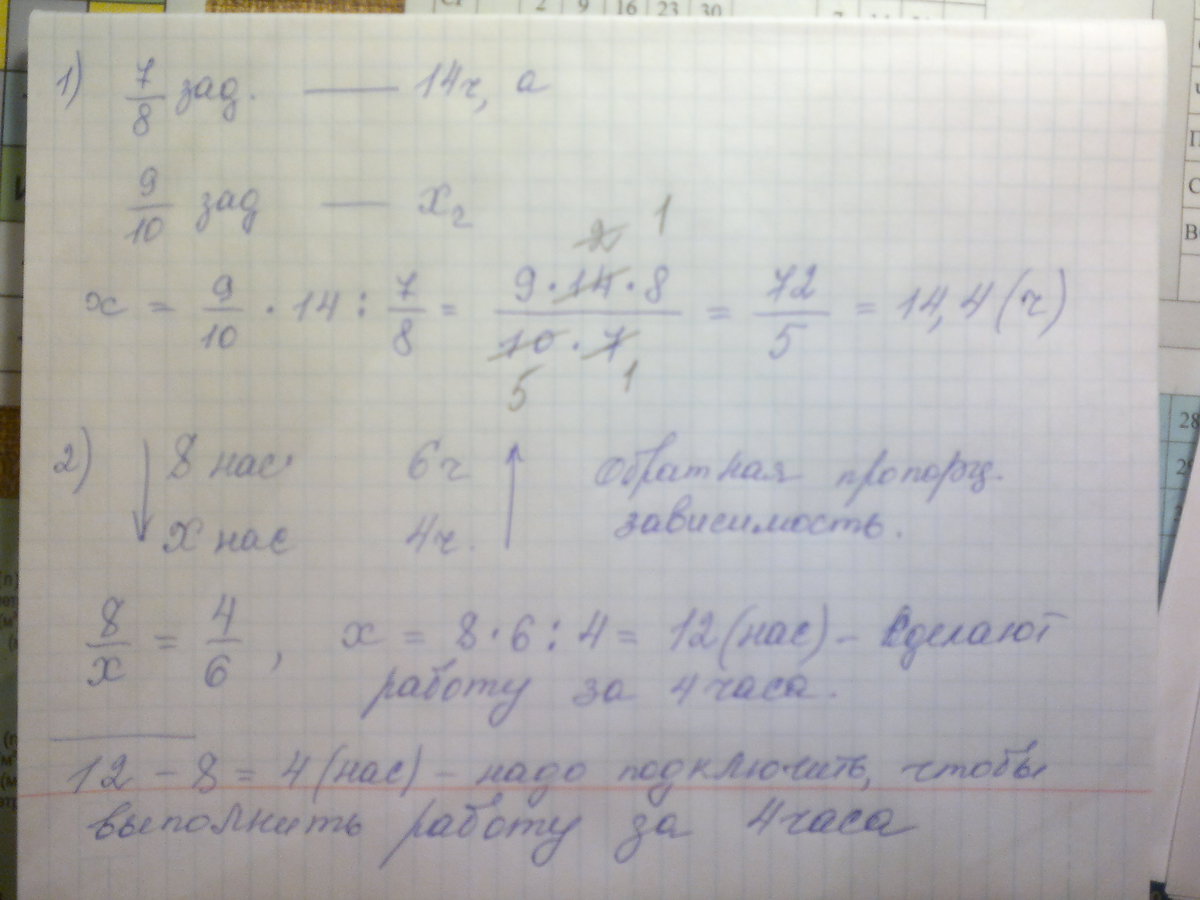 2 9 16 23 30
1) 7/8 зад. — 14ч, а
9/10 зад — х₂
х = 9/10 · 14 : 7/8 = 9·14·8/10·7 = 72/5 = 14,4 (ч)
2 1
5 1
2) ↓ 8 нас 6ч ↑ Обратная пропорц.
х нас 4ч. зависимость.
8/х = 4/6 , х = 8·6:4 = 12 (нас) – сделают
работу за 4 часа.
12 – 8 = 4 (нас) – надо подключить, чтобы
выполнить работу за 4 часа
28